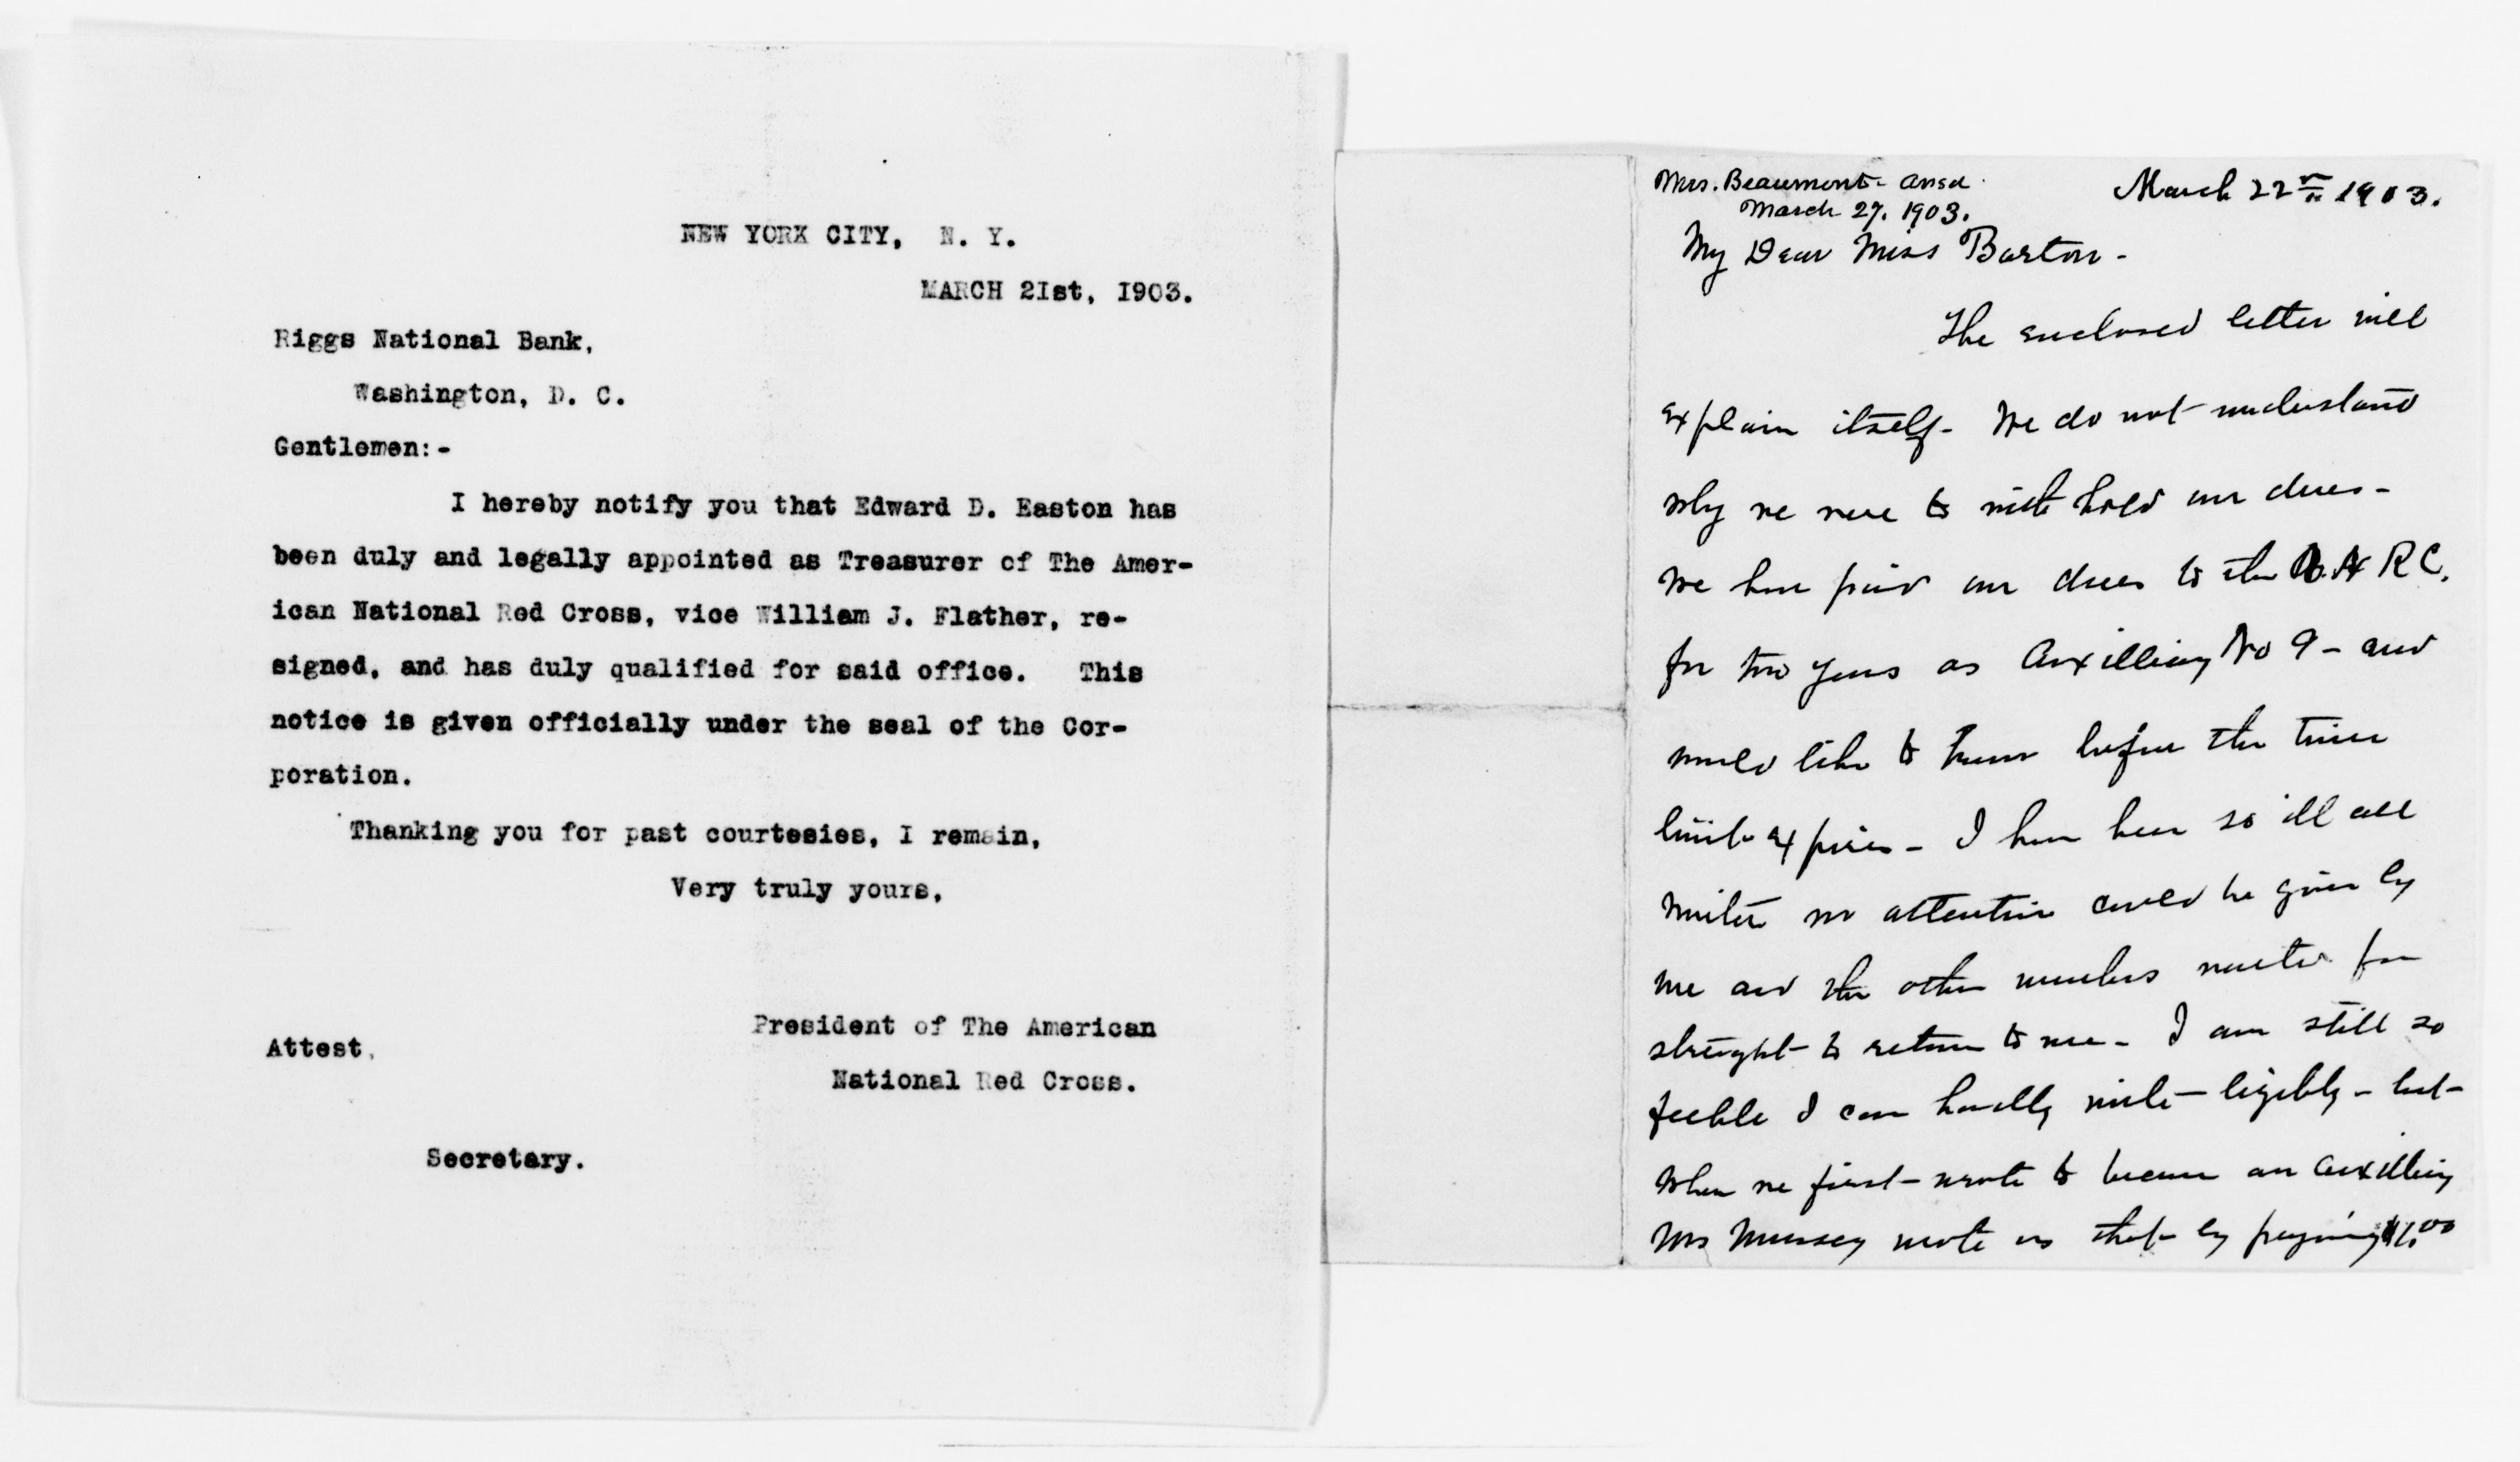 NEW YORK CITY, N. Y.
MARCH 2Ist, I903.
Riggs National Bank,
Washington, D. C.
Gentlemen:-
I hereby notify you that Edward D. Easton has
been duly and legally appointed as Treasurer of The Amer-
ican National Red Cross, vice William J. Flather, re-
signed, and has duly qualified for said office. This
notice is given officially under the seal of the Cor-
poration.
Thanking you for past courtesies, I remain,
Very truly yours,
President of The American
National Red Cross.
Attest,
Secretary.
Mrs. Beaumont- ansd.
March 27. 1903.
March 22nd 1903.
My Dear Miss Barton-
The enclosed letter will
explain itself- We do not understand
why we were to withhold our dues-
We have paid our dues to the A.N R C.
for two years as Auxilliary No 9- and
would like to know before the time
limit expires- I have been so ill all
winter no attention could be given by
me and the other members waited for
strenght to return to me- I am still so
feeble I can hardly write legibly- but-
When we first- wrote to become an Auxilliary
Mrs Mussey wrote us that by paying $1.00